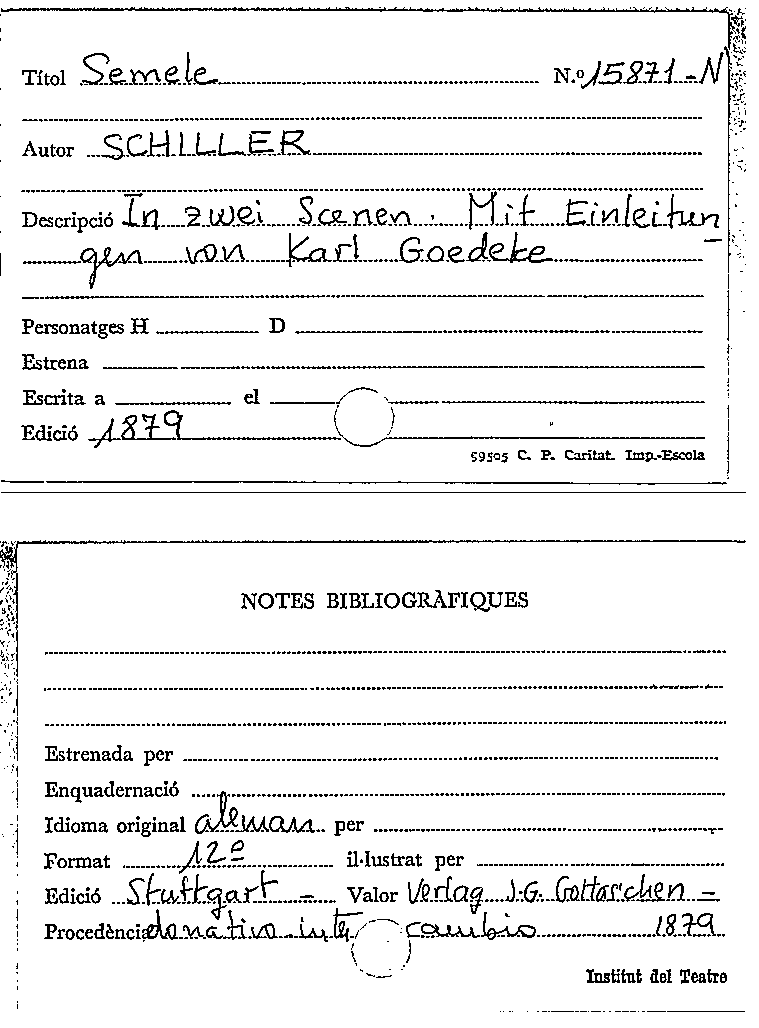 Títol Semele N.º 15871-N
Autor SCHILLER
Descripció In zwei Scenen. Mit Einleitun-
gen von Karl Goedeke
Personatges H D
Estrena
Escrita a el
Edició 1879
59505 C. P. Caritat. Imp.-Escola
NOTES BIBLIOGRÀFIQUES
Estrenada per
Enquadernació
Idioma original aleman per
Format 12º il·lustrat per
Edició Stuttgart - Valor Verlag J.G. Cottaschen -
Procedència donativo intercambio 1879
Institut del Teatre